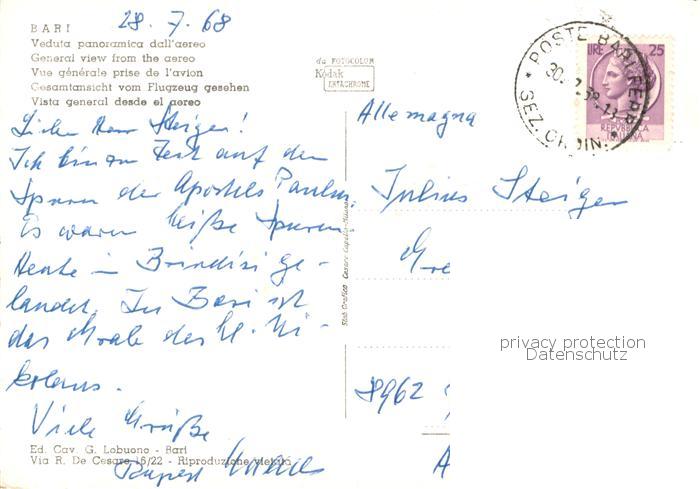 28.7.68
BARI
Veduta panoramica dall'aereo
General view from the aereo
Vue générale prise de l'avion
Gesamtansicht vom Flugzeug gesehen
Vista general desde el aereo
da FOTOCOLOR
Kodak
EKTACHROME
POSTE BARI FERR.
SEZ.
LIRE 25
REPUBBLICA
ITALIANA
Lieber Herr Steiger!
Ich bin zur Zeit auf den
Spuren des Apostels Paulus.
Es waren heiße Spuren.
Heute in Brindisi ge-
landet. In Bari ist
das Grab des hl. Ni-
kolaus.
Viele Grüße
Allemagna
Julius Steiger
8962
privacy protection
Datenschutz
Stab. Grafico Cesare Capello - Milano
Ed. Cav. G. Lobuono - Bari
Via R. De Cesare 16/22 - Riproduzione vietata